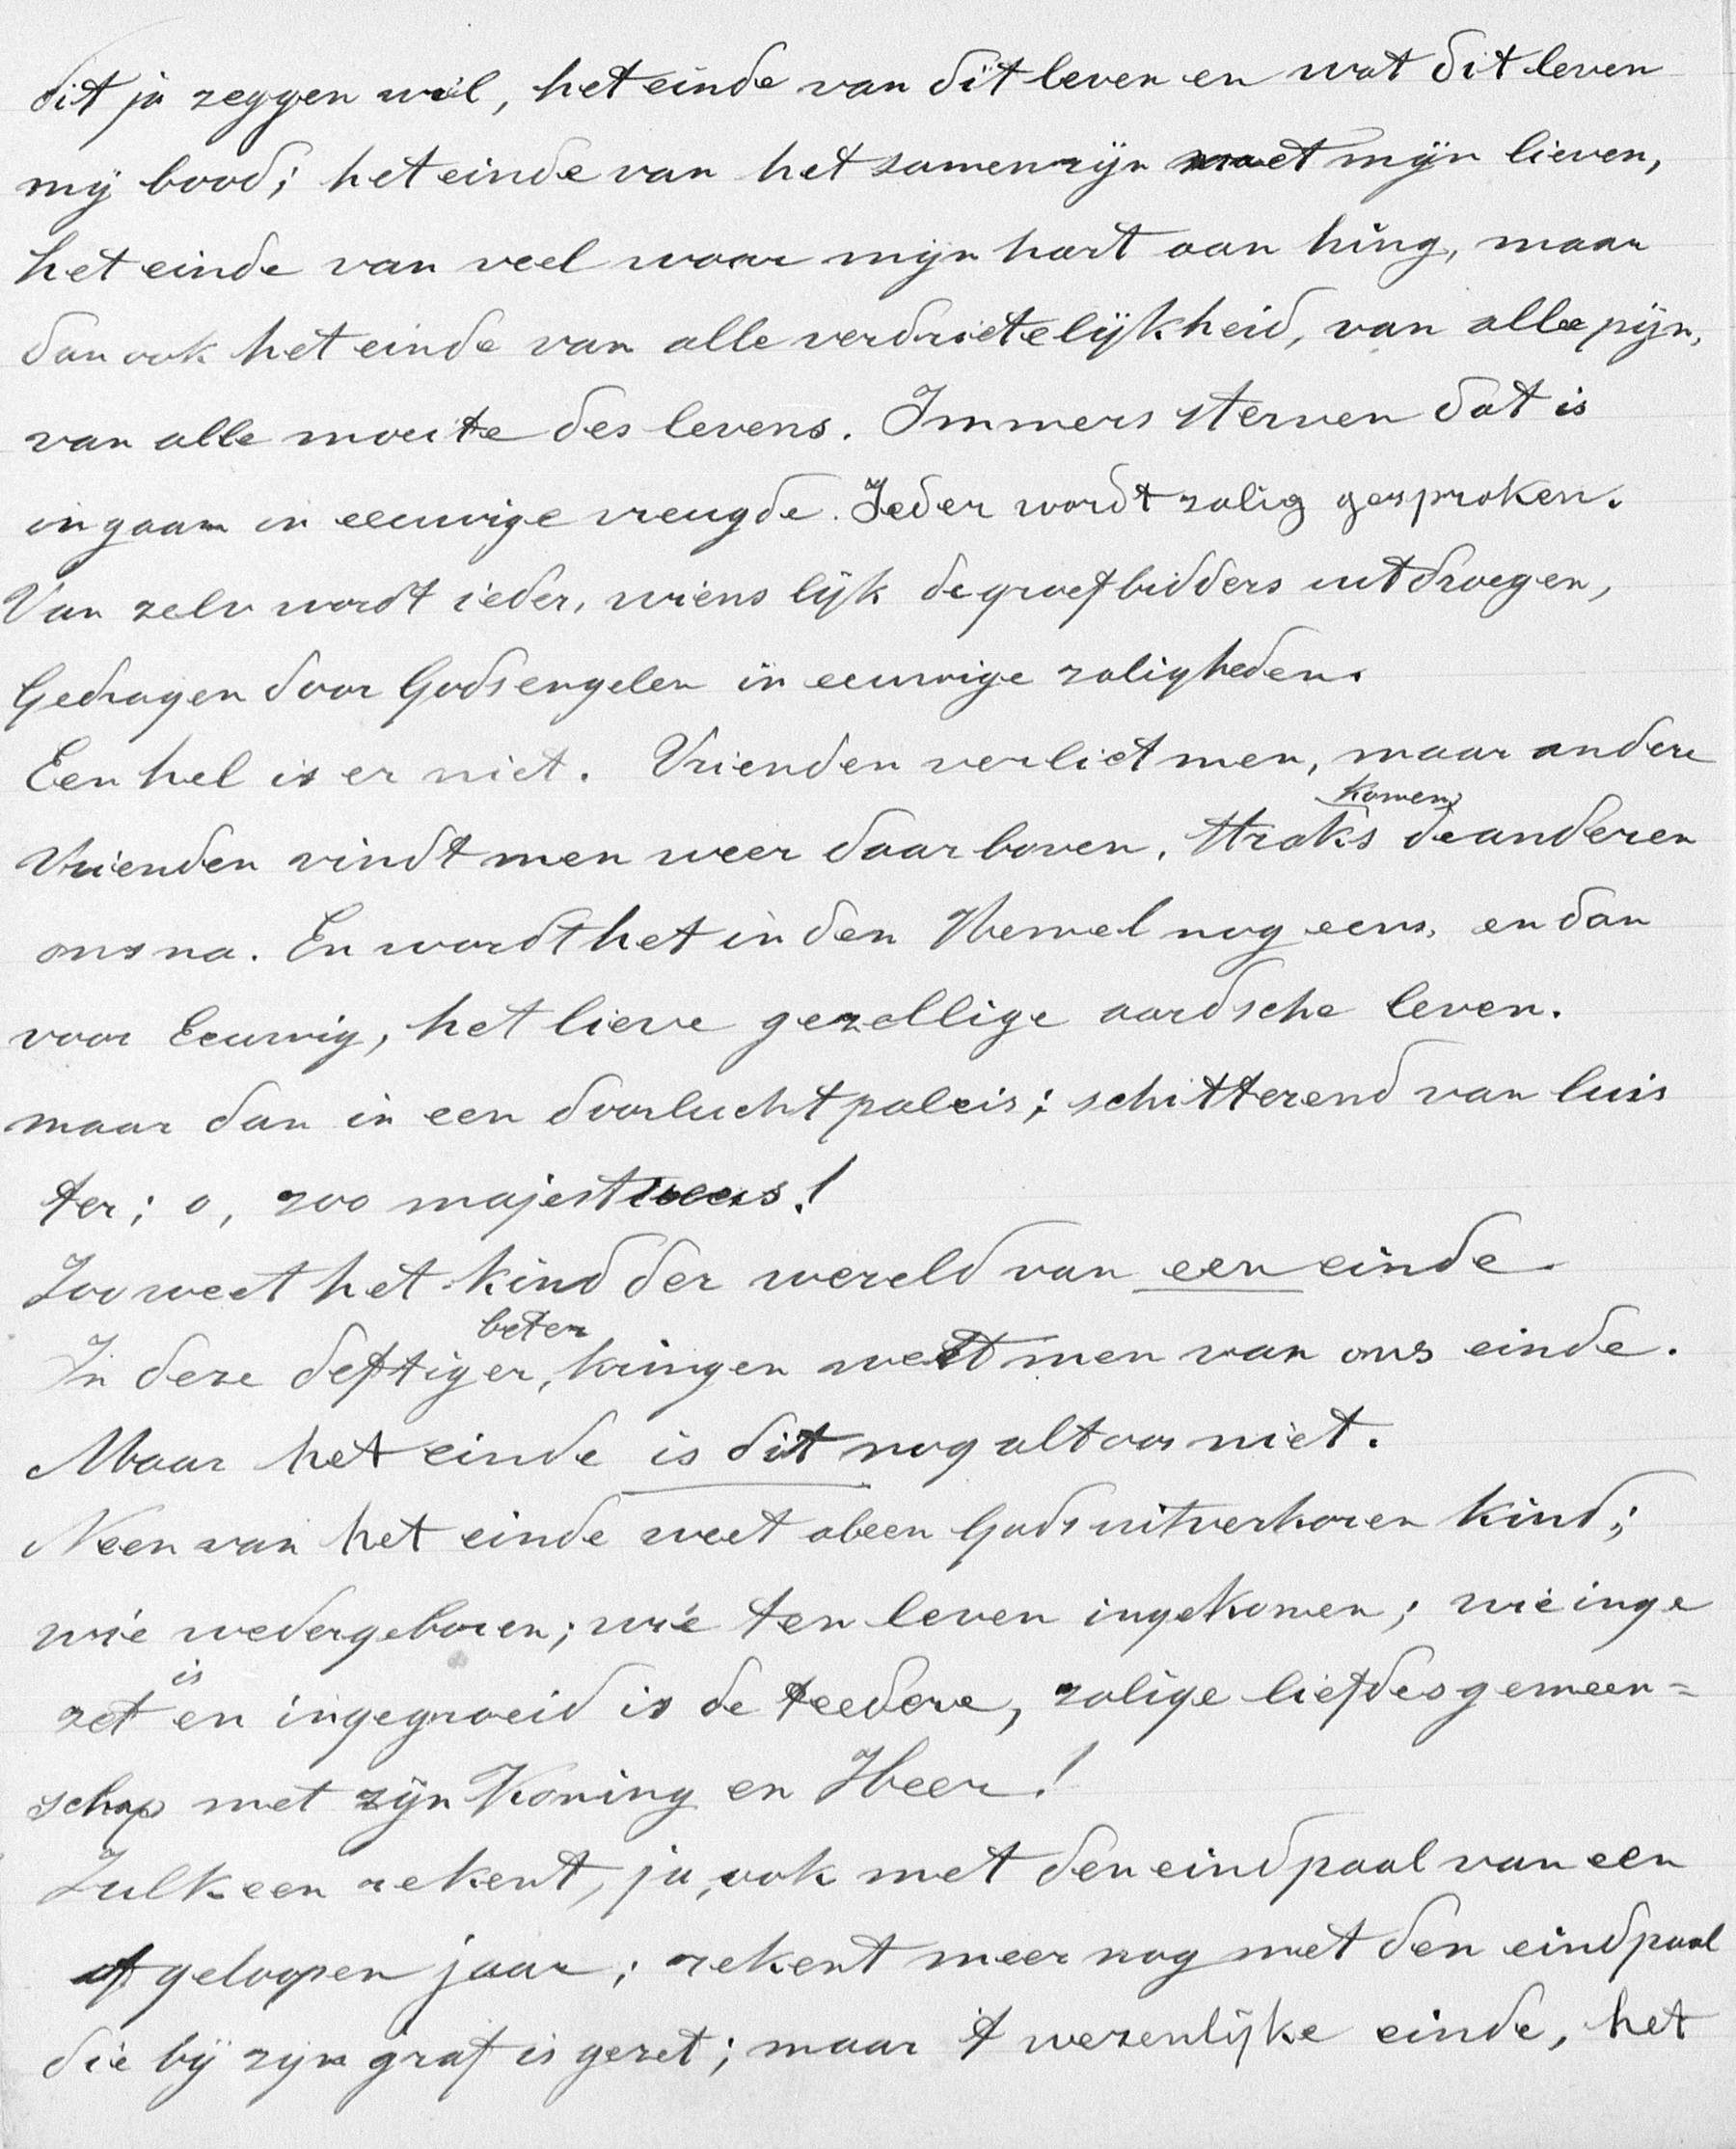 dit ja zeggen wil, het einde van dit leven en wat dit leven
mij bood; het einde van het samenzijn met mijn lieven,
het einde van veel waar mijn hart aan hing, maar
dan ook het einde van alle verdrietelijkheid, van alle pijn,
van alle moeite des levens. Immers sterven dat is
ingaan in eeuwige vreugde. Ieder wordt zalig gesproken.
Van zelv wordt ieder, wiens lijk de groefbidders uitdroegen,
Gedragen door Gods engelen in eeuwige zaligheden.
Een hel is er niet. Vrienden verliet men, maar andere
komen
Vrienden vindt men weer daar boven, straks de anderen
ons na. En wordt het in den Hemel nog eens, en dan
voor Eeuwig, het lieve gezellige aardsche leven.
maar dan in een doorlucht paleis; schitterend van luis
ter; o, zoo majestueus!
Zoo weet het kind der wereld van een einde
beter
In deze deftiger, kringen weet men van ons einde.
Maar het einde is dit nog altoos niet.
Neen van het einde weet alleen Gods uitverkoren kind;
wie wedergeboren; wie ten leven ingekomen; wie inge
is
zet en ingegroeid is de teedere, zalige liefdesgemeen=
schap met zijn Koning en Heer!
Zulk een rekent, ja, ook met den eindpaal van een
afgeloopen jaar; rekent meer nog met den eindpaal
die bij zijn graf is gezet; maar 't wezenlijke einde, het